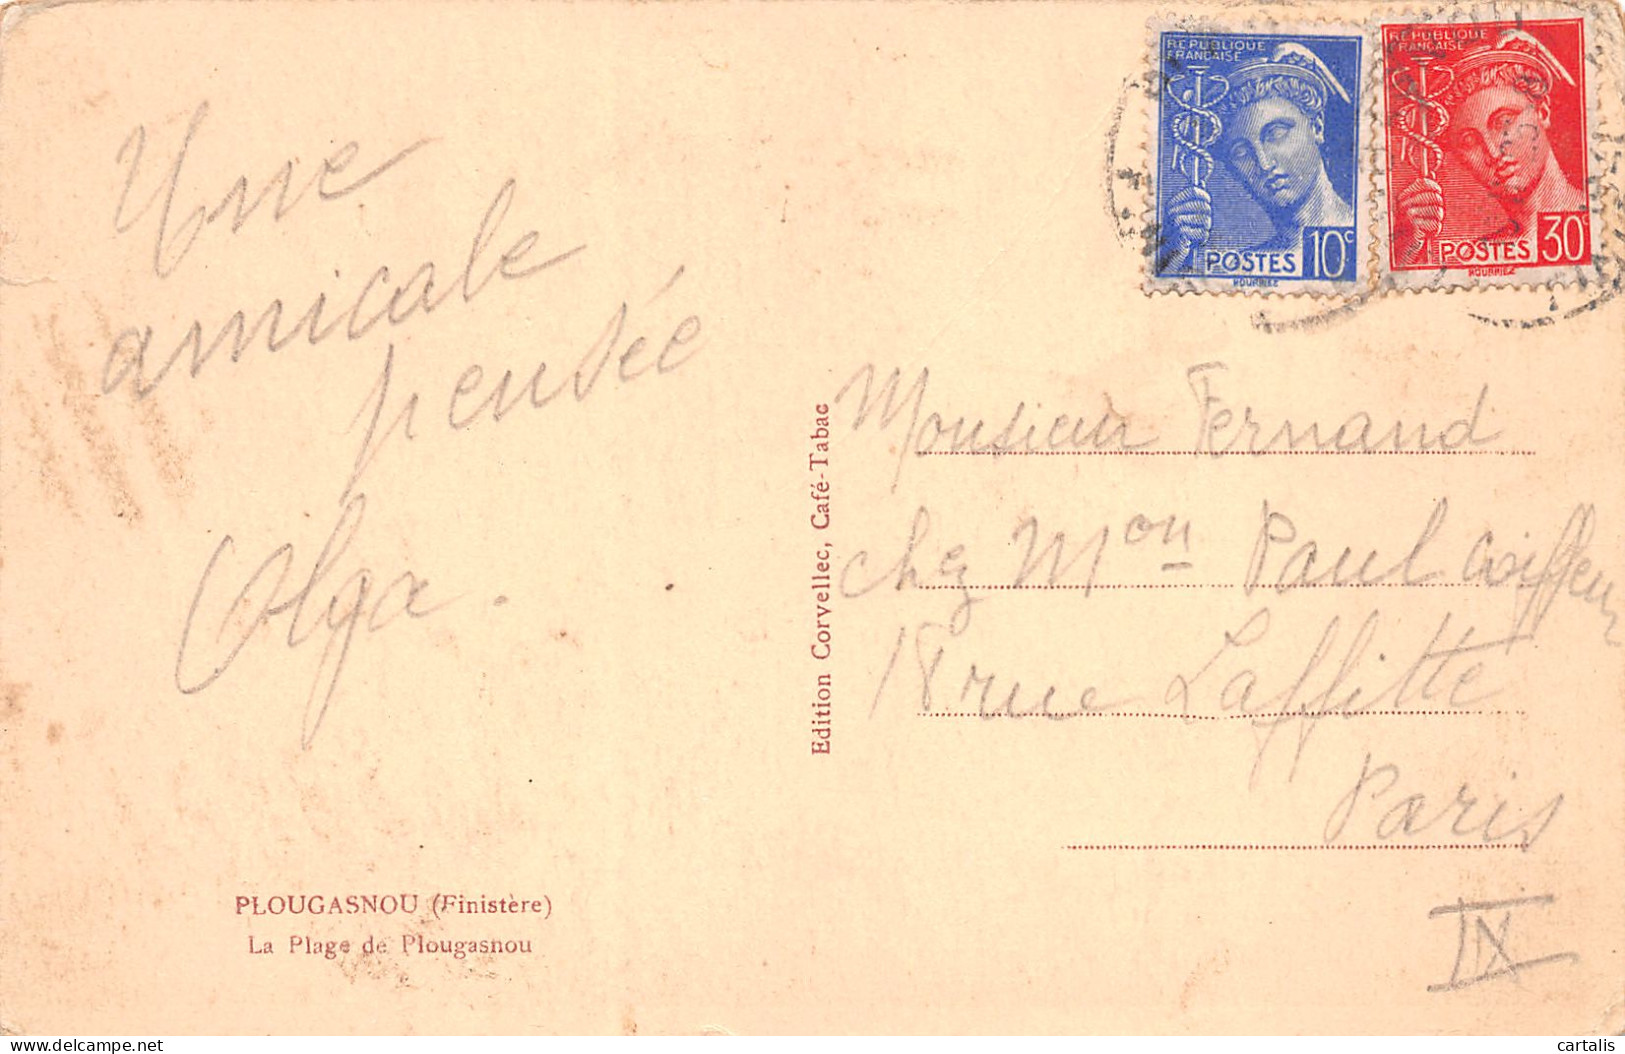 Une
amicale
pensée
Olga.
PLOUGASNOU (Finistère)
La Plage de Plougasnou
Edition Corvellec, Café-Tabac
REPUBLIQUE
FRANÇAISE
POSTES 10c
HOURRIEZ
REPUBLIQUE
FRANÇAISE
POSTES 30c
HOURRIEZ
Monsieur Fernand
chez Mon Paul Coiffeur
18 rue Laffitte
Paris
IX
delcampe.net
cartalis